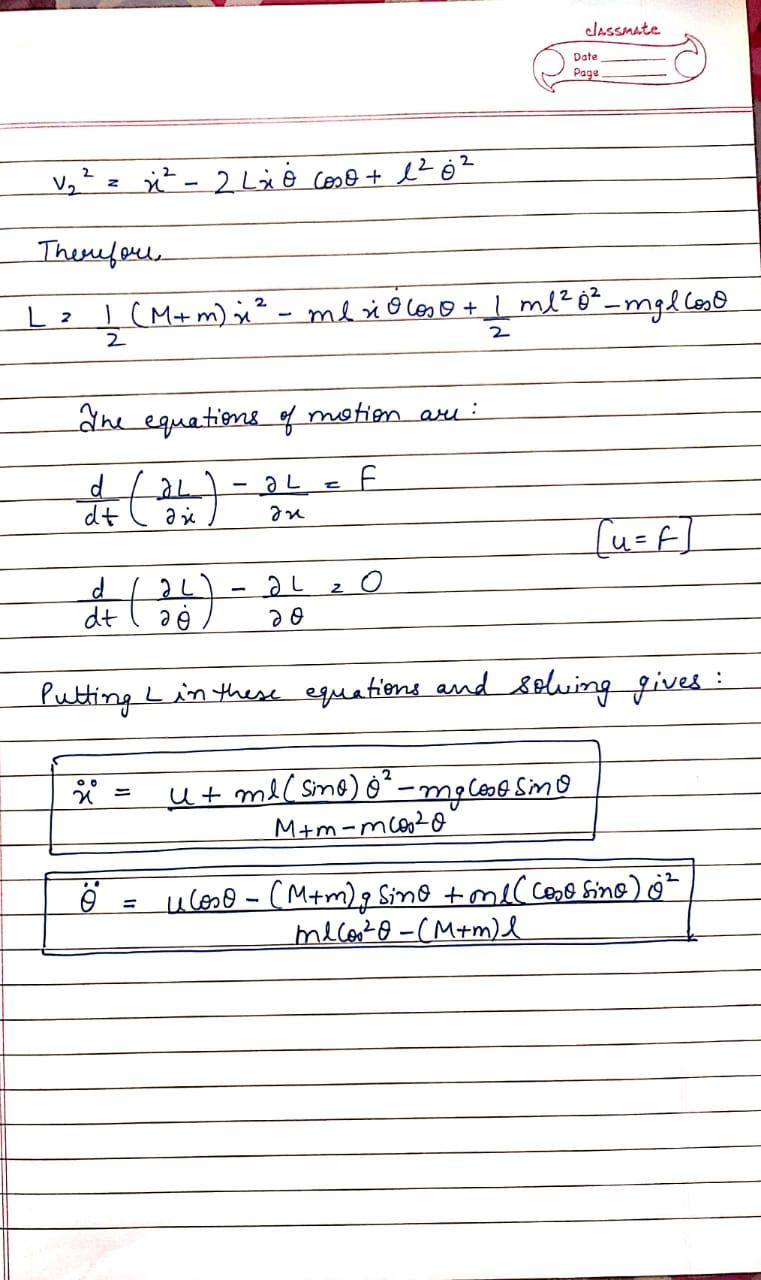 classmate
Date
Page
v₂² = ẋ² - 2Lẋθ̇ cosθ + l²θ̇²
Therefore,
L = 1/2 (M+m)ẋ² - mlẋθ̇cosθ + 1/2 ml²θ̇² - mglcosθ
The equations of motion are :
d/dt (∂L/∂ẋ) - ∂L/∂x = F
[u = F]
d/dt (∂L/∂θ̇) - ∂L/∂θ = 0
Putting L in these equations and solving gives :
ẍ = (u + ml(sinθ)θ̇² - mgcosθsinθ)/(M+m-mcos²θ)
θ̈ = (ucosθ - (M+m)gsinθ + ml(cosθsinθ)θ̇²)/(mlcos²θ - (M+m)l)